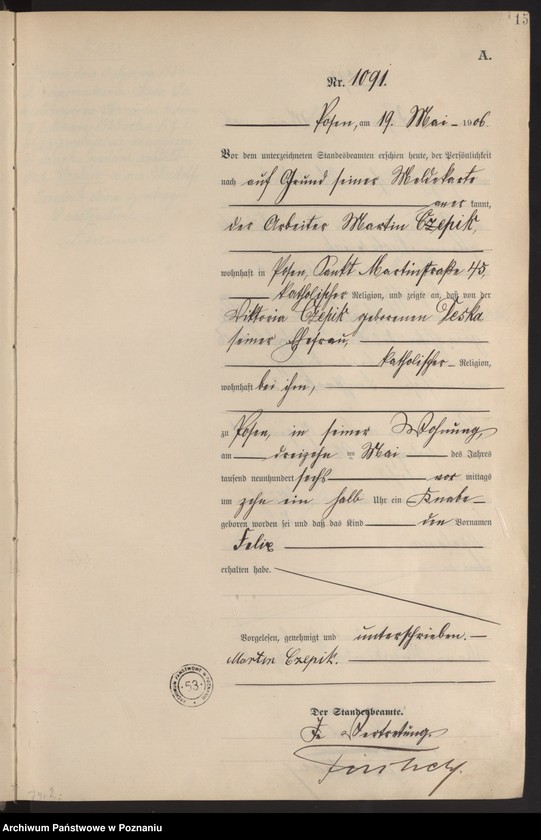 15
A.
Nr. 1091.
Posen, am 19. Mai 1906.
Vor dem unterzeichneten Standesbeamten erschien heute, der Persönlichkeit
nach auf Grund seiner Meldekarte
aner kannt,
der Arbeiter Martin Czepik,
wohnhaft in Posen, Sankt Martinstraße 45,
katholischer Religion, und zeigte an, daß von der
Viktoria Czepik geborenen Teska
seiner Ehefrau,
katholischer Religion,
wohnhaft bei ihm,
zu Posen, in seiner Wohnung,
am dreizehn ten Mai des Jahres
tausend neunhundert sechs vor mittags
um zehn ein halb Uhr ein Knabe
geboren worden sei und daß das Kind den Vornamen
Felix
erhalten habe.
Vorgelesen, genehmigt und unterschrieben.
Martin Czepik.
ARCHIWUM PAŃSTWOWE W POZNANIU
53
Der Standesbeamte.
In Vertretung.
Archiwum Państwowe w Poznaniu